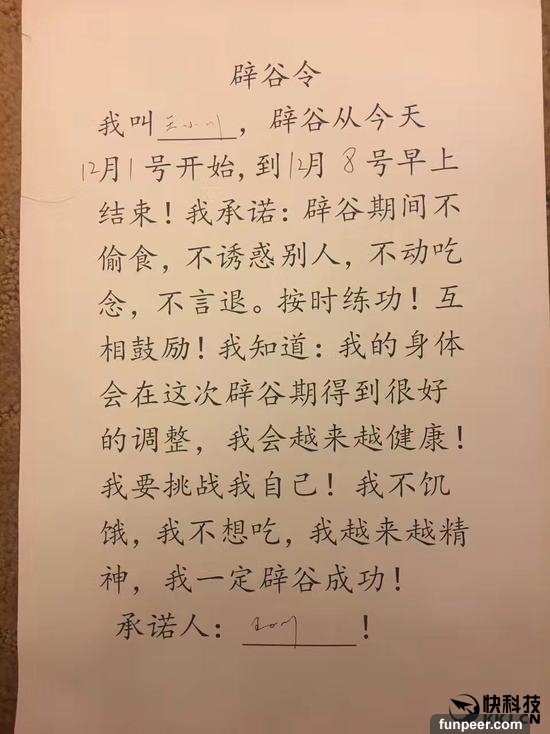 辟谷令
我叫王小川，辟谷从今天
12月1号开始，到12月8号早上
结束！我承诺：辟谷期间不
偷食，不诱惑别人，不动吃
念，不言退。按时练功！互
相鼓励！我知道：我的身体
会在这次辟谷期得到很好
的调整，我会越来越健康！
我要挑战我自己！我不饥
饿，我不想吃，我越来越精
神，我一定辟谷成功！
承诺人：王小川！
快科技
KKJ.CN
funpeer.com